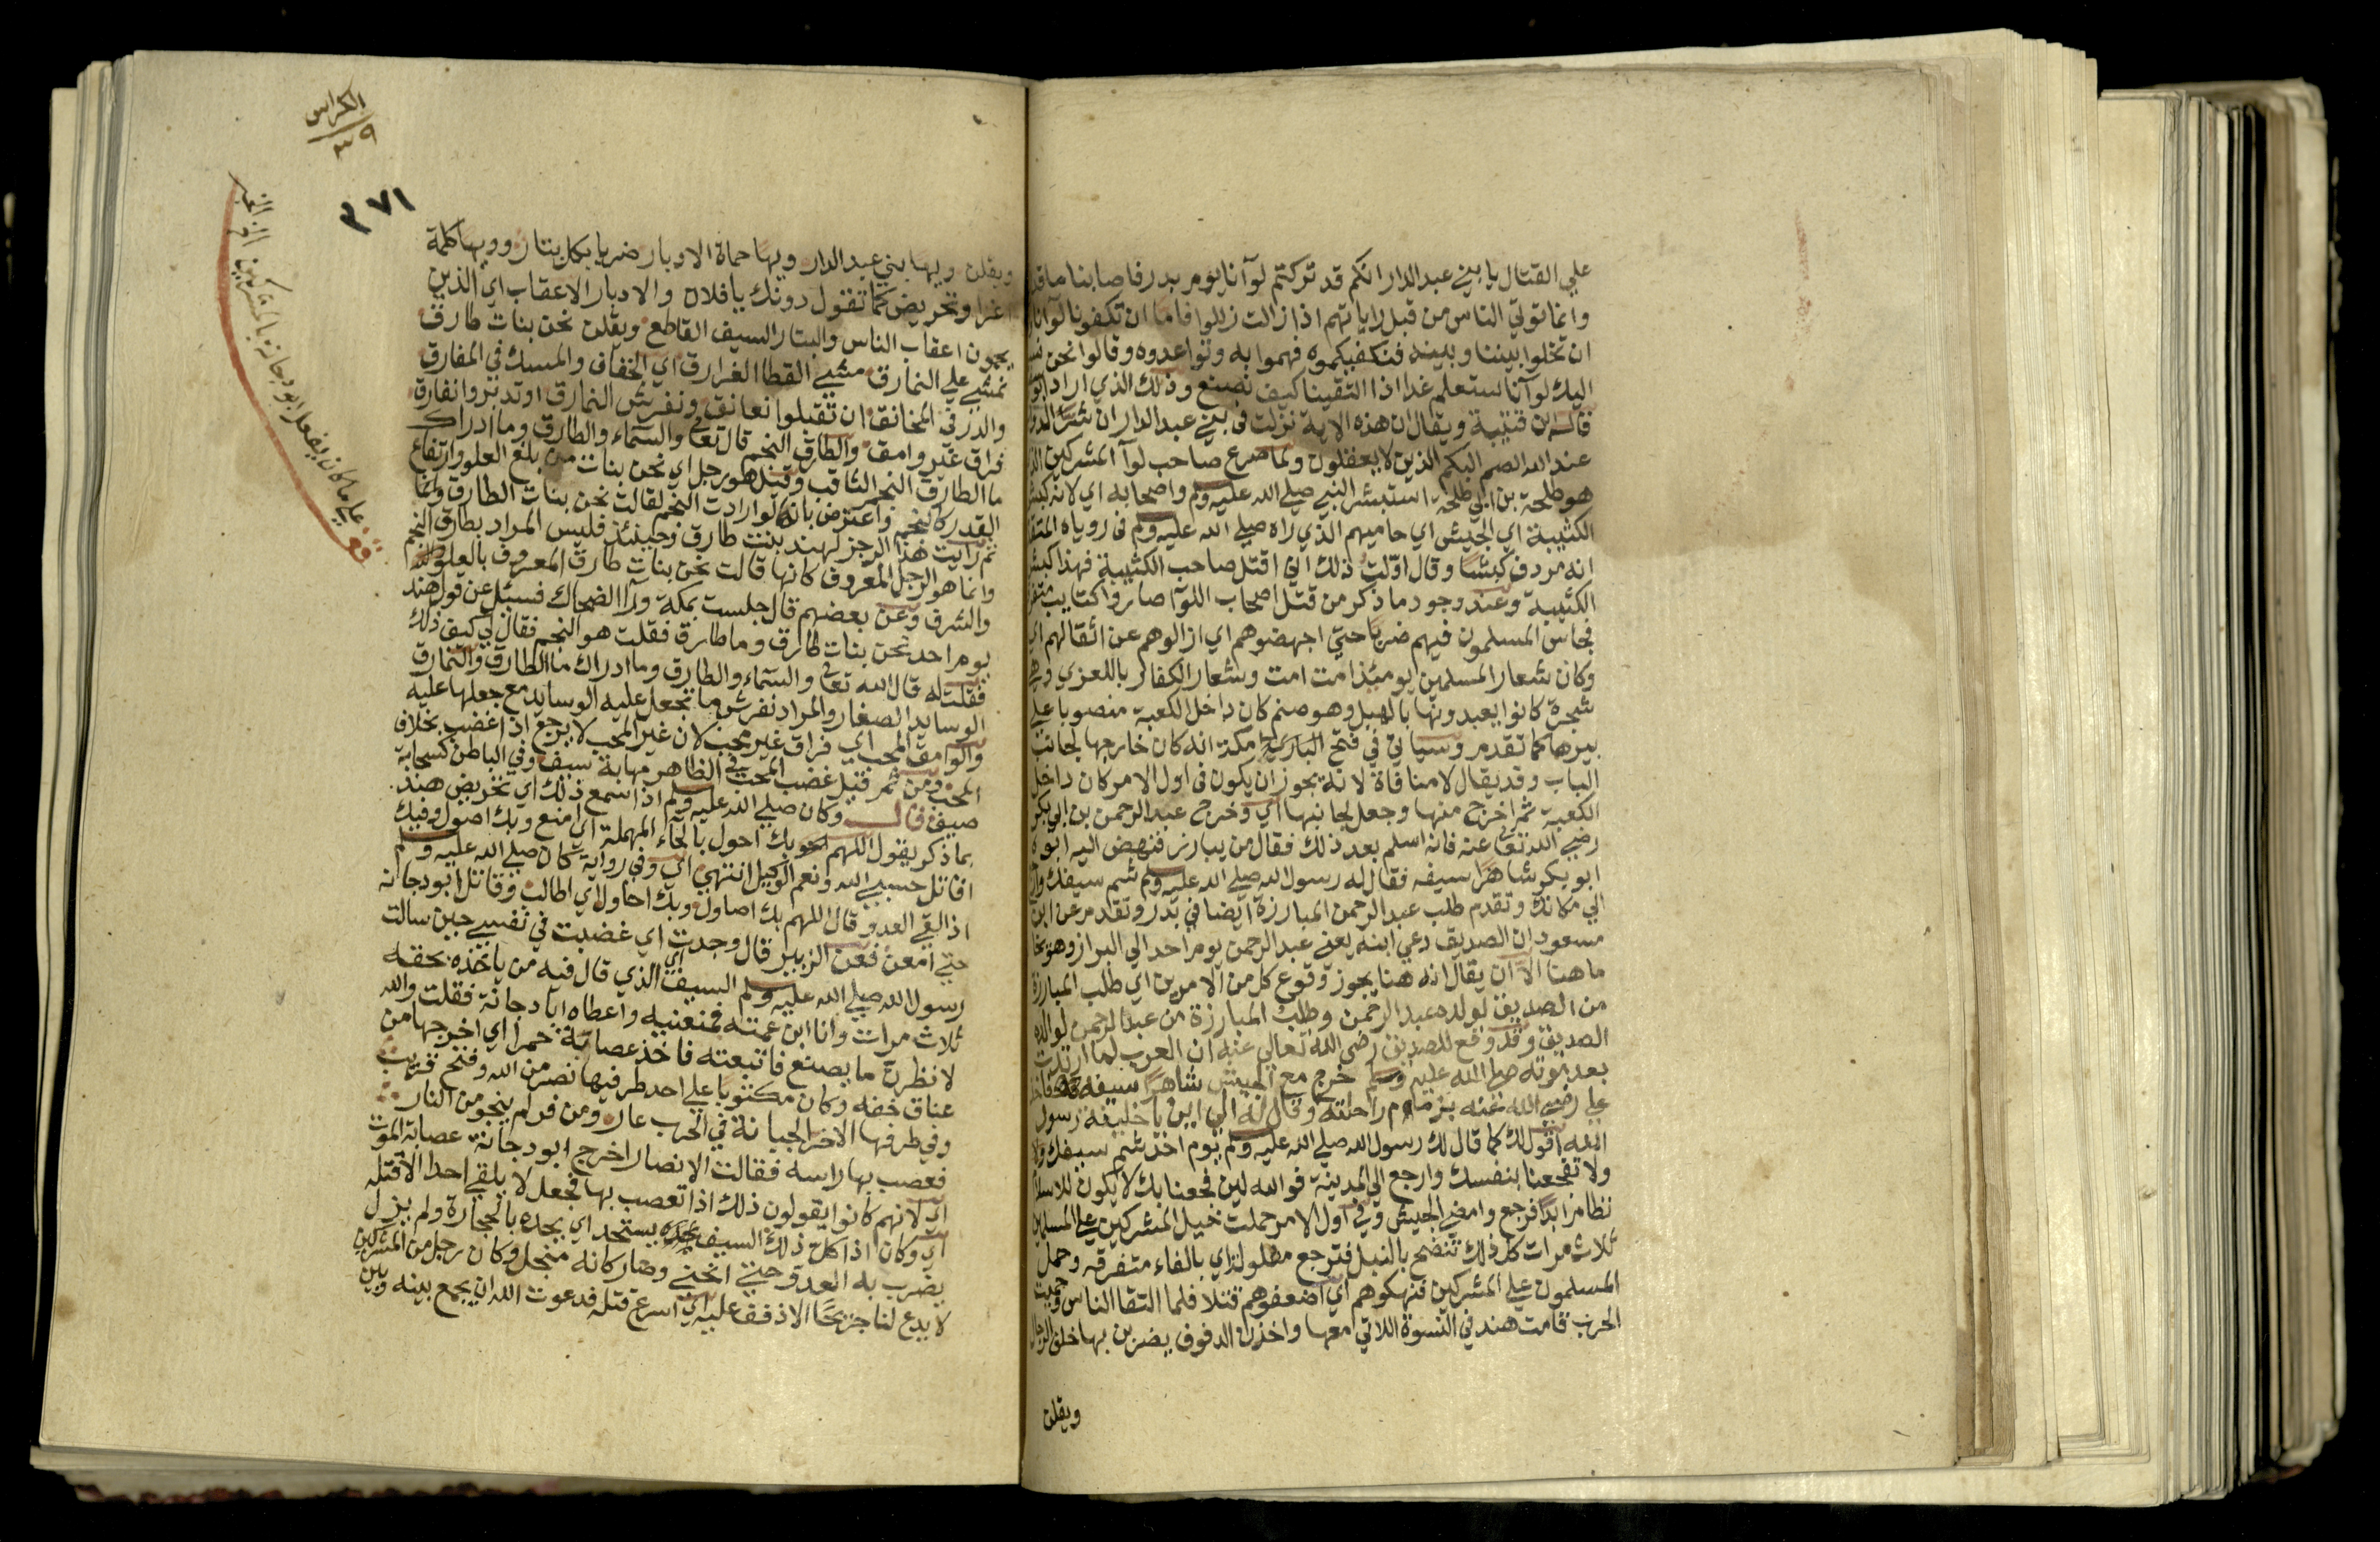 علي القتال يا بني عبد الدار انكم قد تركتم لوآنا يوم بدر فاصابنا ما قد
وانما تولي الناس من قبل راياتهم اذا زالت زالوا فاما ان تكفونا لوآنا
ان تخلوا بيننا وبينه فنكفيكموه فهموا به وتواعدوه وقالوا نحن
اليك لوآنا ستعلم غدا اذا التقينا كيف نصنع وذلك الذي اراد ابو
قال ابن قتيبة ويقال ان هذه الاية نزلت في بني عبد الدار ان شر الدو
عند الله الصم البكم الذين لا يعقلون ولما صرع صاحب لوآ المشركين
هو طلحة بن ابي طلحة استبشر النبي صلي الله عليه وسلم واصحابه اي لانه كبش
الكتيبة اي الجيش اي حاميهم الذي راه صلي الله عليه وسلم في روياه
انه مردف كبشا وقال اولت ذلك اني اقتل صاحب الكتيبة فهذا كبش
الكتيبة وعند وجود ما ذكر من قتل اصحاب اللوآ صاروا كتايب
فجاس المسلمون فيهم ضربا حتي اجهضوهم اي ازالوهم عن اثقالهم اي
وكان شعار المسلمين يوميذ امت امت وشعار الكفار ياللعزي وهي
شجرة كانوا يعبدونها يالهبل وهو صنم كان داخل الكعبة منصوبا علي
بيرها كما تقدم وسياتي في فتح مكة انه كان خارجها لجانب
الباب وقد يقال لا منافاة لانه يجوز ان يكون في اول الامر كان داخل
الكعبة ثم اخرج منها وجعل لجانبها اي وخرج عبد الرحمن بن ابي بكر
رضي الله تعالي عنه فانه اسلم بعد ذلك فقال من يبارز فنهض اليه ابوه
ابو بكر شاهرا سيفه فقال له رسول الله صلي الله عليه وسلم شم سيفك
الي مكانك وتقدم طلب عبد الرحمن المبارزة ايضا في بدر وتقدم عن ابن
مسعود ان الصديق دعي ابنه يعني عبد الرحمن يوم احد الي البراز وهو
ما هنا الا ان يقال انه هنا يجوز وقوع كل من الامرين اي طلب المبارزة
من الصديق لولده عبد الرحمن وطلب المبارزة من عبد الرحمن لوالده
الصديق وقد وقع للصديق رضي الله تعالي عنه ان العرب لما ارتدت
بعد موته صلي الله عليه وسلم خرج مع الجيش شاهرا سيفه فاخذ
علي رضي الله عنه بزمام راحلته وقال له الي اين يا خليفة رسول
الله اقول لك كما قال لك رسول الله صلي الله عليه وسلم يوم احد شم سيفك
ولا تفجعنا بنفسك وارجع الي المدينة فوالله لين فجعنا بك لا يكون للاسلام
نظام ابدا فرجع وامضي الجيش وفي اول الامر حملت خيل المشركين علي المسلمين
ثلاث مرات كل ذلك تنضح بالنبل فترجع مفلولة اي بالفاء متفرقه وحمل
المسلمون علي المشركين فنهكوهم اي اضعفوهم قتلا فلما التقا الناس وحميت
الحرب قامت هند في النسوة اللاتي معها واخذن الدفوف يضربن بها خلف الرجال
ويقلن
الكراس
٣٩
٣٧١
ويقلن ويها بني عبد الدار ويها حماة الادبار ضربا بكل بتار وويها كلمة
اغرا وتحريض كما تقول دونك يا فلان والادبار الاعقاب اي الذين
يحمون اعقاب الناس والبتار السيف القاطع ويقلن نحن بنات طارق
نمشي علي النمارق مشي القطا الغرارق اي الخفاف والمسك في المفارق
والدر في المخانق ان تقبلوا نعانق ونفرش النمارق او تدبروا نفارق
فراق غير وامق والطارق النجم قال تعالي والسماء والطارق وما ادراك
ما الطارق النجم الثاقب وقيل هو رجل اي نحن بنات من بلغ العلو وارتفاع
القدر كالنجم واعترض بانه لو ارادت النجم لقالت نحن بنات الطارق وانما
ثم رايت هذا الرجز لهند بنت طارق وحينئذ فليس المراد بطارق النجم
وانما هو الرجل المعروف كانها قالت نحن بنات طارق المعروف بالعلو
والشرف وعن بعضهم قال جلست بمكة ورآ الضحاك فسئل عن قول هند
يوم احد نحن بنات طارق وما طارق فقلت هو النجم فقال لي كيف ذلك
فقلت له قال الله تعالي والسماء والطارق وما ادراك ما الطارق والنمارق
الوسايد الصغار والمراد نفرش ما تجعل عليه الوسايد مع جعلها عليه
والوامق المحب اي فراق غير محب لان غير المحب لا يرجع اذا غضب بخلاف
المحب ومن ثم قيل غضب المحب في الظاهر مهابة سيف وفي الباطن كسحابة
صيف قال وكان صلي الله عليه وسلم اذا سمع ذلك اي تحريض هند
بما ذكر يقول اللهم بك احول بالحاء المهملة اي امنع وبك اصول وفيك
اقاتل حسبي الله ونعم الوكيل انتهي اي وفي رواية كان صلي الله عليه وسلم
اذا لقي العدو قال اللهم بك اصاول وبك احاول اي اطالب وقاتل ابو دجانه
حتي امعن فعن الزبير قال وجدت اي غضبت في نفسي حين سالت
رسول الله صلي الله عليه وسلم السيف اي الذي قال فيه من ياخذه بحقه
ثلاث مرات وانا ابن عمته فمنعنيه واعطاه ابا دجانة فقلت والله
لانظرن ما يصنع فاتبعته فاخذ عصابة حمرا اي اخرجها من
عناق خفه وكان مكتوبا علي احد طرفيها نصر من الله وفتح قريب
وفي طرفها الاخر الجبانة في الحرب عار ومن فر لم ينجو من النار
فعصب بها راسه فقالت الانصار اخرج ابو دجانة عصابة الموت
اي لانهم كانوا يقولون ذلك اذا تعصب بها فجعل لا يلقي احدا الا قتله
اي وكان اذا كل ذلك السيف يستحد اي يحده بالحجارة ولم يزل
يضرب به العدو حتي انحني وصار كانه منجل وكان رجل من المشركين
لا يدع لنا جريحا الا ذفف عليه اي اسرع قتله فدعوت الله ان يجمع بينه وبين
قف علي ما كان يفعل ابو دجانة بالمشركين